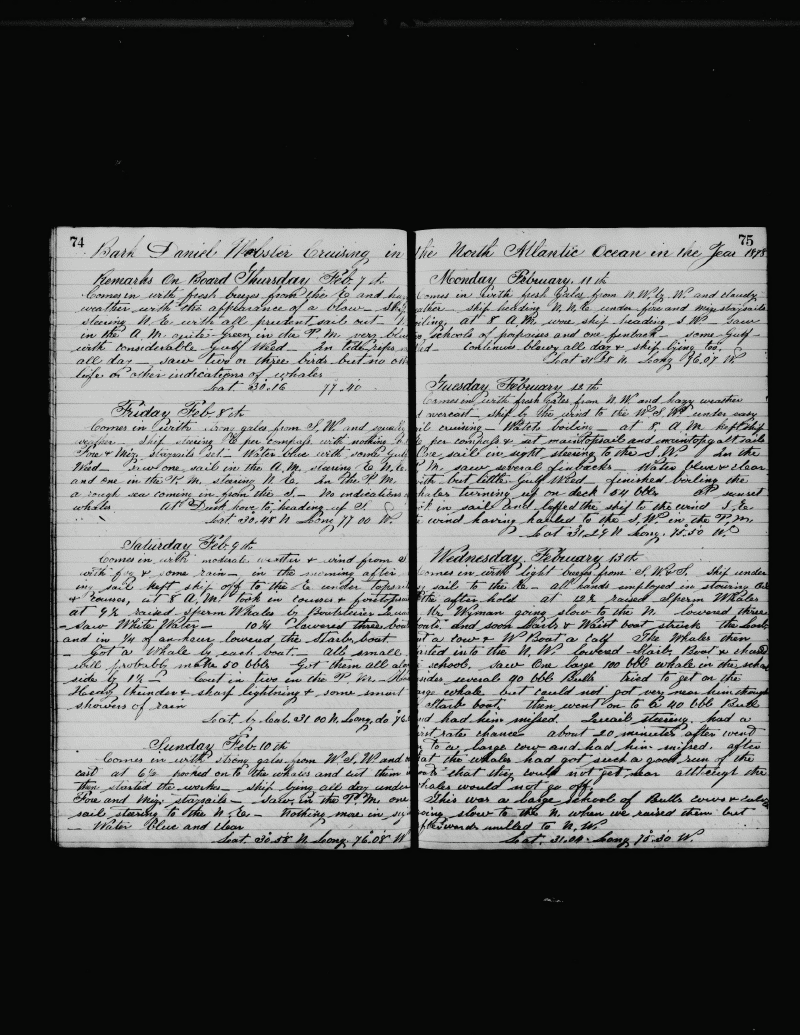 74
Bark Daniel Webster Cruising in
Remarks On Board Thursday Feb 7th
Comes in with fresh breezes from the E and
weather with the appearance of a blow - Ship
steering N.E. with all prudent sail out
in the A.M. quite green in the P.M. very blue
with considerable Gulf Weed
all day - saw two or three birds but no
life or other indications of whales
Lat 30.16 77.40
Friday Feb 8th
Comes in with strong gales from S.W and squally
weather ship steering E per compass with nothing
Fore & Miz. staysails set - Water blue with some Gulf
Weed - saw one sail in the A.M. steering E.N.E.
and one in the P.M. steering N.E. In the P.M
a rough sea coming in from the S. - No indications
whales At Dusk hove to, heading up S
Lat 30,48 N Long 77 00 W.
Saturday Feb 9th
Comes in with moderate weather & wind from S
with fog & some rain - in the morning after
ing sail kept ship off to the E under Topsails
& courses, at 8 A.M. took in courses &
at 9½ raised Sperm Whales by Boatsteerer
- Saw White Water - 10¼ lowered three boats
and in ¼ of an hour lowered the Starb. boat
- Got a Whale by each boat - All small
will probably make 50 bbls Got them all along
side by 1½ - Cut in two in the P.M. -
Heavy thunder & sharp lightning & some smart
showers of rain
Lat by Cal. 31 00 N. Long, do 76
Sunday Feb. 10th
Comes in with strong gales from W.S.W. and
cast at 6½ hooked on to the whales and cut them
then started the works - ship lying all day under
Fore and Miz. staysails - Saw, in the P.M. one
sail steering to the N.E - Nothing more in
- Water blue and clear
Lat. 30°.58' N. Long. 76°.08' W
75
the North Atlantic Ocean in the Year 1878
Monday February. 11th
Comes in with fresh Gales from N.W. by W. and cloudy
ather ship heading N.N.E. under fore and miz staysails
oiling, at 8 A.M. wore ship heading S.W. Saw
schools of porpoises and one finback - some Gulf
ed - continues blowy all day & ship lying too
Lat 31 28 N Long 76.07 W
Tuesday February 12th
Comes in with fresh Gales from N.W and hazy weather
overcast - ship by the wind to the W.S.W. under easy
il cruising - Watch boiling - at 8, A.M. kept ship
E per compass & set maintopsail and maintopgalt sails
One sail in sight steering to the S.W. In the
P.M. saw several finbacks - Water blue & clear
with but little Gulf Weed finished boiling the
hales turning up on deck 54 bbls At sunset
ook in sail and luffed the ship to the wind S.E.
wind having hauled to the S.W. in the P.M.
Lat 31,29 N Long. 75.50 W.
Wednesday, February 13th
Comes in with light breezes from S.W. & S. ship under
sail to the E - all hands employed in stowing
the after hold at 12½ raised Sperm Whales
Mr. Wyman going slow to the N. lowered three
boats and soon Larb. & Waist boat struck the Larb
a cow & W Boat a calf The Whales then
arted into the N.W. lowered Starb. Boat & chased
school, saw One large 100 bbl whale in the school
sides several 90 bbl Bulls tried to get on the
arge whale but could not get very near him though
Starb boat, then went on to a 40 bbl Bull
nd had him missed. Quail steering. had a
irst rates chance about 20 minutes after went
to a large cow and had him missed. after
at the whales had got such a good run of the
boats that they could not get near although the
hales would not go off
This was a large school of Bulls cows & calves
oing slow to the N. when we raised them but
afterwards milled to N.W.
Lat. 31.04 Long 75.30 W.